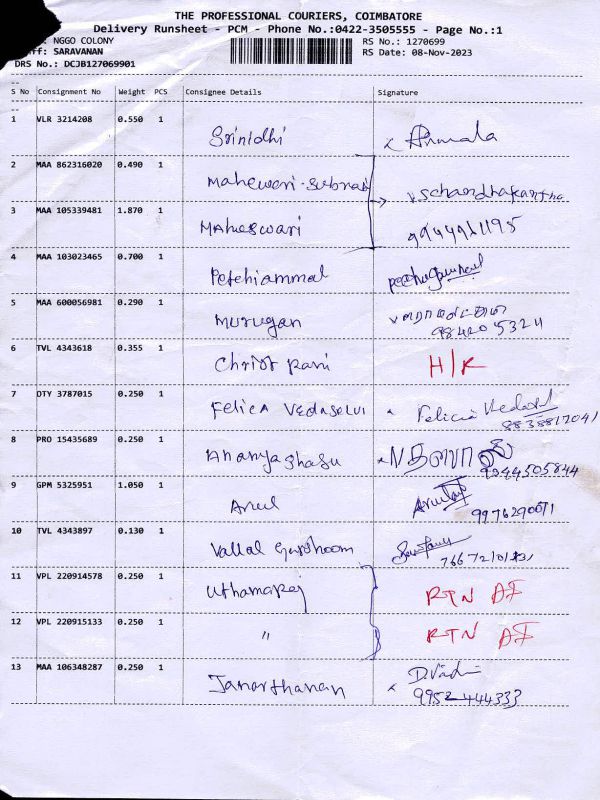 THE PROFESSIONAL COURIERS, COIMBATORE
Delivery Runsheet - PCM - Phone No.:0422-3505555 - Page No.:1
NGGO COLONY RS No.: 1270699
SARAVANAN RS Date: 08-Nov-2023
DRS No.: DCJB127069901
S No Consignment No Weight PCS Consignee Details Signature
1 VLR 3214208 0.550 1
Srinidhi x
2 MAA 862316020 0.490 1
Maheweri-Subnadi vschandhakantha
3 MAA 105339481 1.870 1
Maheswari
4 MAA 103023465 0.700 1
Petchiammal
5 MAA 600056981 0.290 1
Murugan
984205324
6 TVL 4343618 0.355 1
Christ rani H/K
7 DTY 3787015 0.250 1
Felica Vedaselvi x Felicia
8838817041
8 PRO 15435689 0.250 1
Ananyashasu
9244505844
9 GPM 5325951 1.050 1
Arul
10 TVL 4343897 0.130 1
Vallal
11 VPL 220914578 0.250 1
Uthamaraj RTN AF
12 VPL 220915133 0.250 1
" RTN AF
13 MAA 106348287 0.250 1
Janarthanan x
9952444333